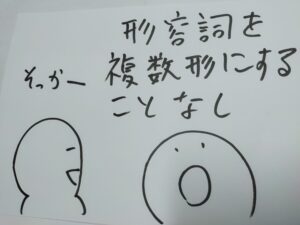 形容詞を
複数形にする
ことなし
そっかー